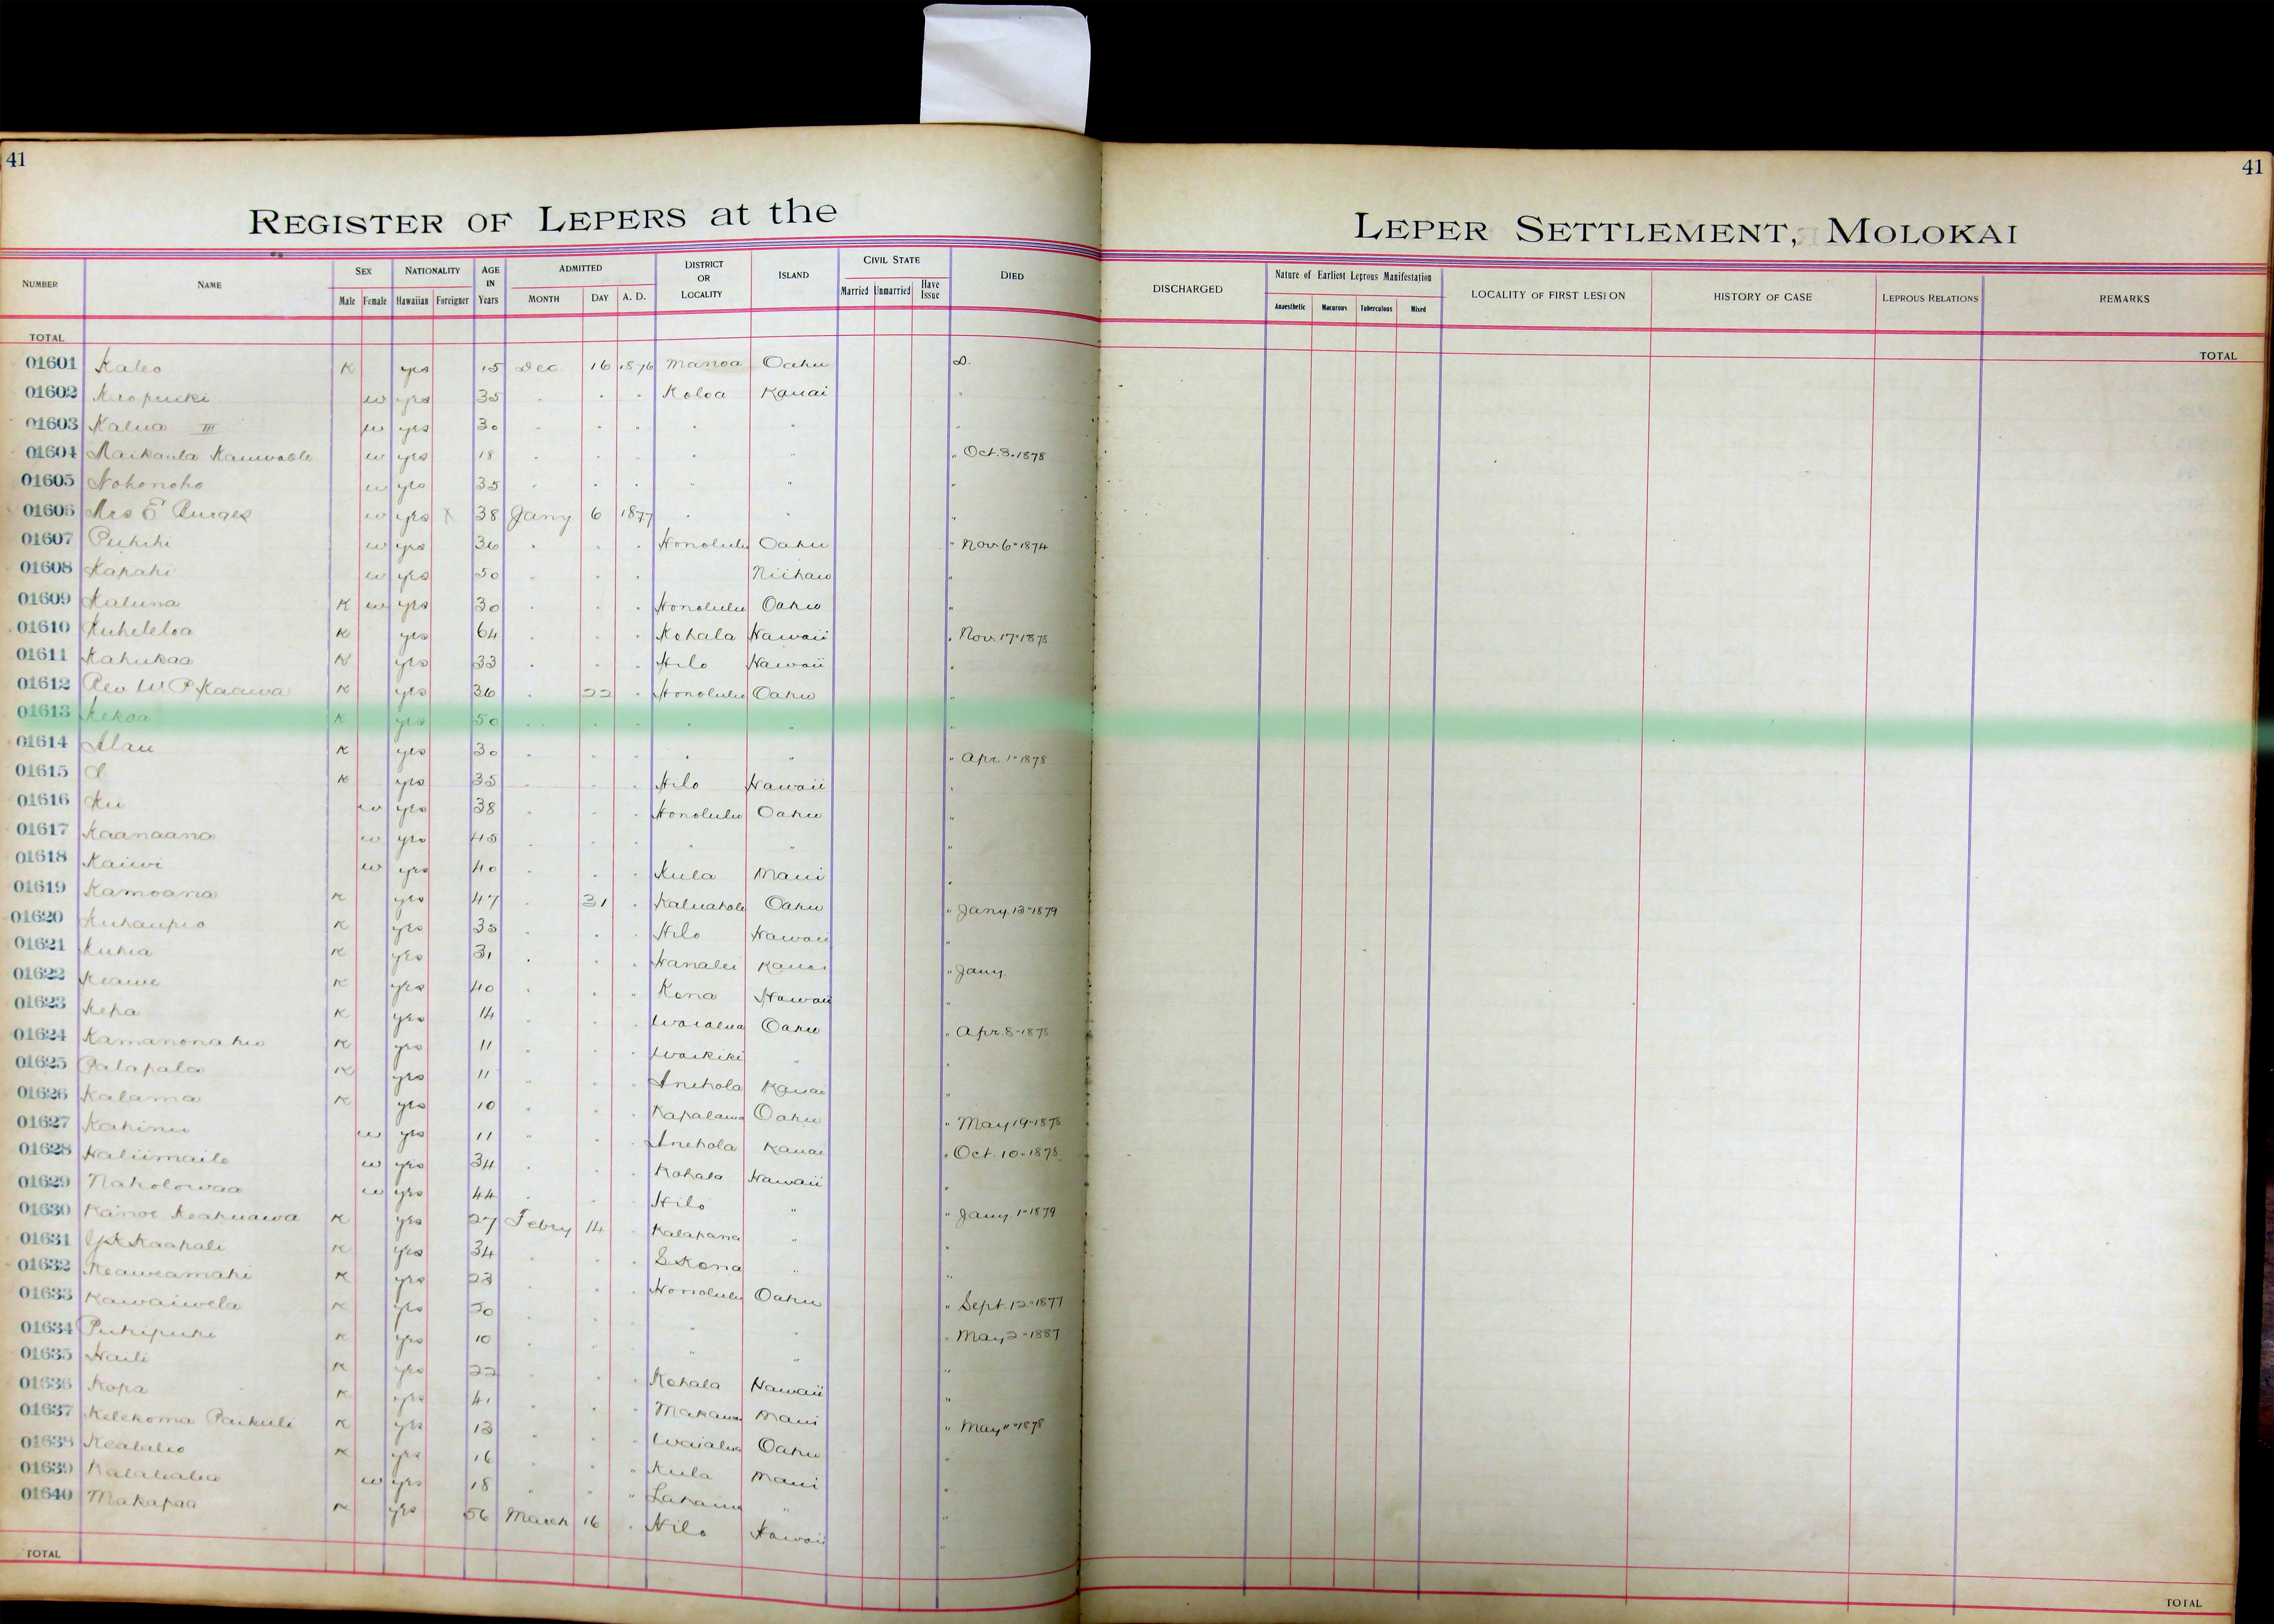 41
41
REGISTER OF LEPERS at the
LEPER SETTLEMENT, MOLOKAI
NUMBER NAME SEX NATIONALITY AGE IN Years ADMITTED DISTRICT OR LOCALITY ISLAND CIVIL STATE DIED
Male Female Hawaiian Foreigner MONTH DAY A. D. Married Unmarried Have Issue
DISCHARGED Nature of Earliest Leprous Manifestation LOCALITY OF FIRST LESION HISTORY OF CASE LEPROUS RELATIONS REMARKS
Anaesthetic Macurous Tuberculous Mixed
TOTAL
TOTAL
01601 Kaleo K yes 15 Dec. 16 1876 Manoa Oahu D.
01602 w yes 35 " " " Koloa Kauai "
01603 Kalua III w yes 30 " " " " " "
01604 Maikaula w yes 18 " " " " " " Oct. 3. 1878
01605 Nohonoho w yes 35 " " " " " "
01606 Mrs E Burges w yes X 38 Jany 6 1877 " " "
01607 Puhihi w yes 36 " " " Honolulu Oahu " Nov 6" 1874
01608 Kapahi w yes 50 " " " Niihau "
01609 Kaluna K w yes 30 " " " Honolulu Oahu "
01610 Kuheleloa K yes 64 " " " Kohala Hawaii " Nov 17" 1878
01611 Kahukaa K yes 33 " " " Hilo Hawaii "
01612 Rev W. P. Kaawa K yes 36 " 22 " Honolulu Oahu "
01613 Kekoa K yes 50 " " " " " "
01614 Alau K yes 30 " " " " " " Apr. 1" 1878
01615 K yes 35 " " " Hilo Hawaii "
01616 Ku w yes 38 " " " Honolulu Oahu "
01617 Kaanaana w yes 45 " " " " " "
01618 Kaiwi w yes 40 " " " Kula Maui "
01619 Kamoana K yes 47 " 31 " Oahu " Jany. 13" 1879
01620 Kuhaupio K yes 35 " " " Hilo Hawaii "
01621 Kuhia K yes 31 " " " Hanalei Kauai " Jany.
01622 Keawe K yes 40 " " " Kona Hawaii "
01623 Kepa K yes 14 " " " Waialua Oahu " Apr. 8" 1878
01624 Kamanonahu K yes 11 " " " Waikiki " "
01625 Palapala K yes 11 " " " Anehola Kauai "
01626 Kalama K yes 10 " " " Kapalama Oahu " May 19" 1878
01627 Kahinu w yes 11 " " " Anehola Kauai " Oct. 10" 1878
01628 Haliimaile w yes 34 " " " Kohala Hawaii "
01629 Naholowaa w yes 44 " " " Hilo " " Jany 1" 1879
01630 Kanoe Keakuawa K yes 27 Febry 14 " Kalapana " "
01631 Kaahale K yes 34 " " " S Kona " "
01632 Keaweamahi K yes 23 " " " Honolulu Oahu " Sept. 12" 1877
01633 Kawaiwela K yes " " " " " " May 2" 1887
01634 Puhipuhi K yes 10 " " " " " "
01635 Haili K yes 22 " " " Kohala Hawaii "
01636 Kopa K yes 41 " " " Makawao Maui " May 11" 1878
01637 Kelekoma Paikuli K yes 13 " " " Waialua Oahu "
01638 Kealalio K yes 16 " " " Kula Maui "
01639 w yes 18 " " " Lahaina " "
01640 Makapaa K yes 56 March 16 " Hilo Hawaii "
TOTAL
TOTAL